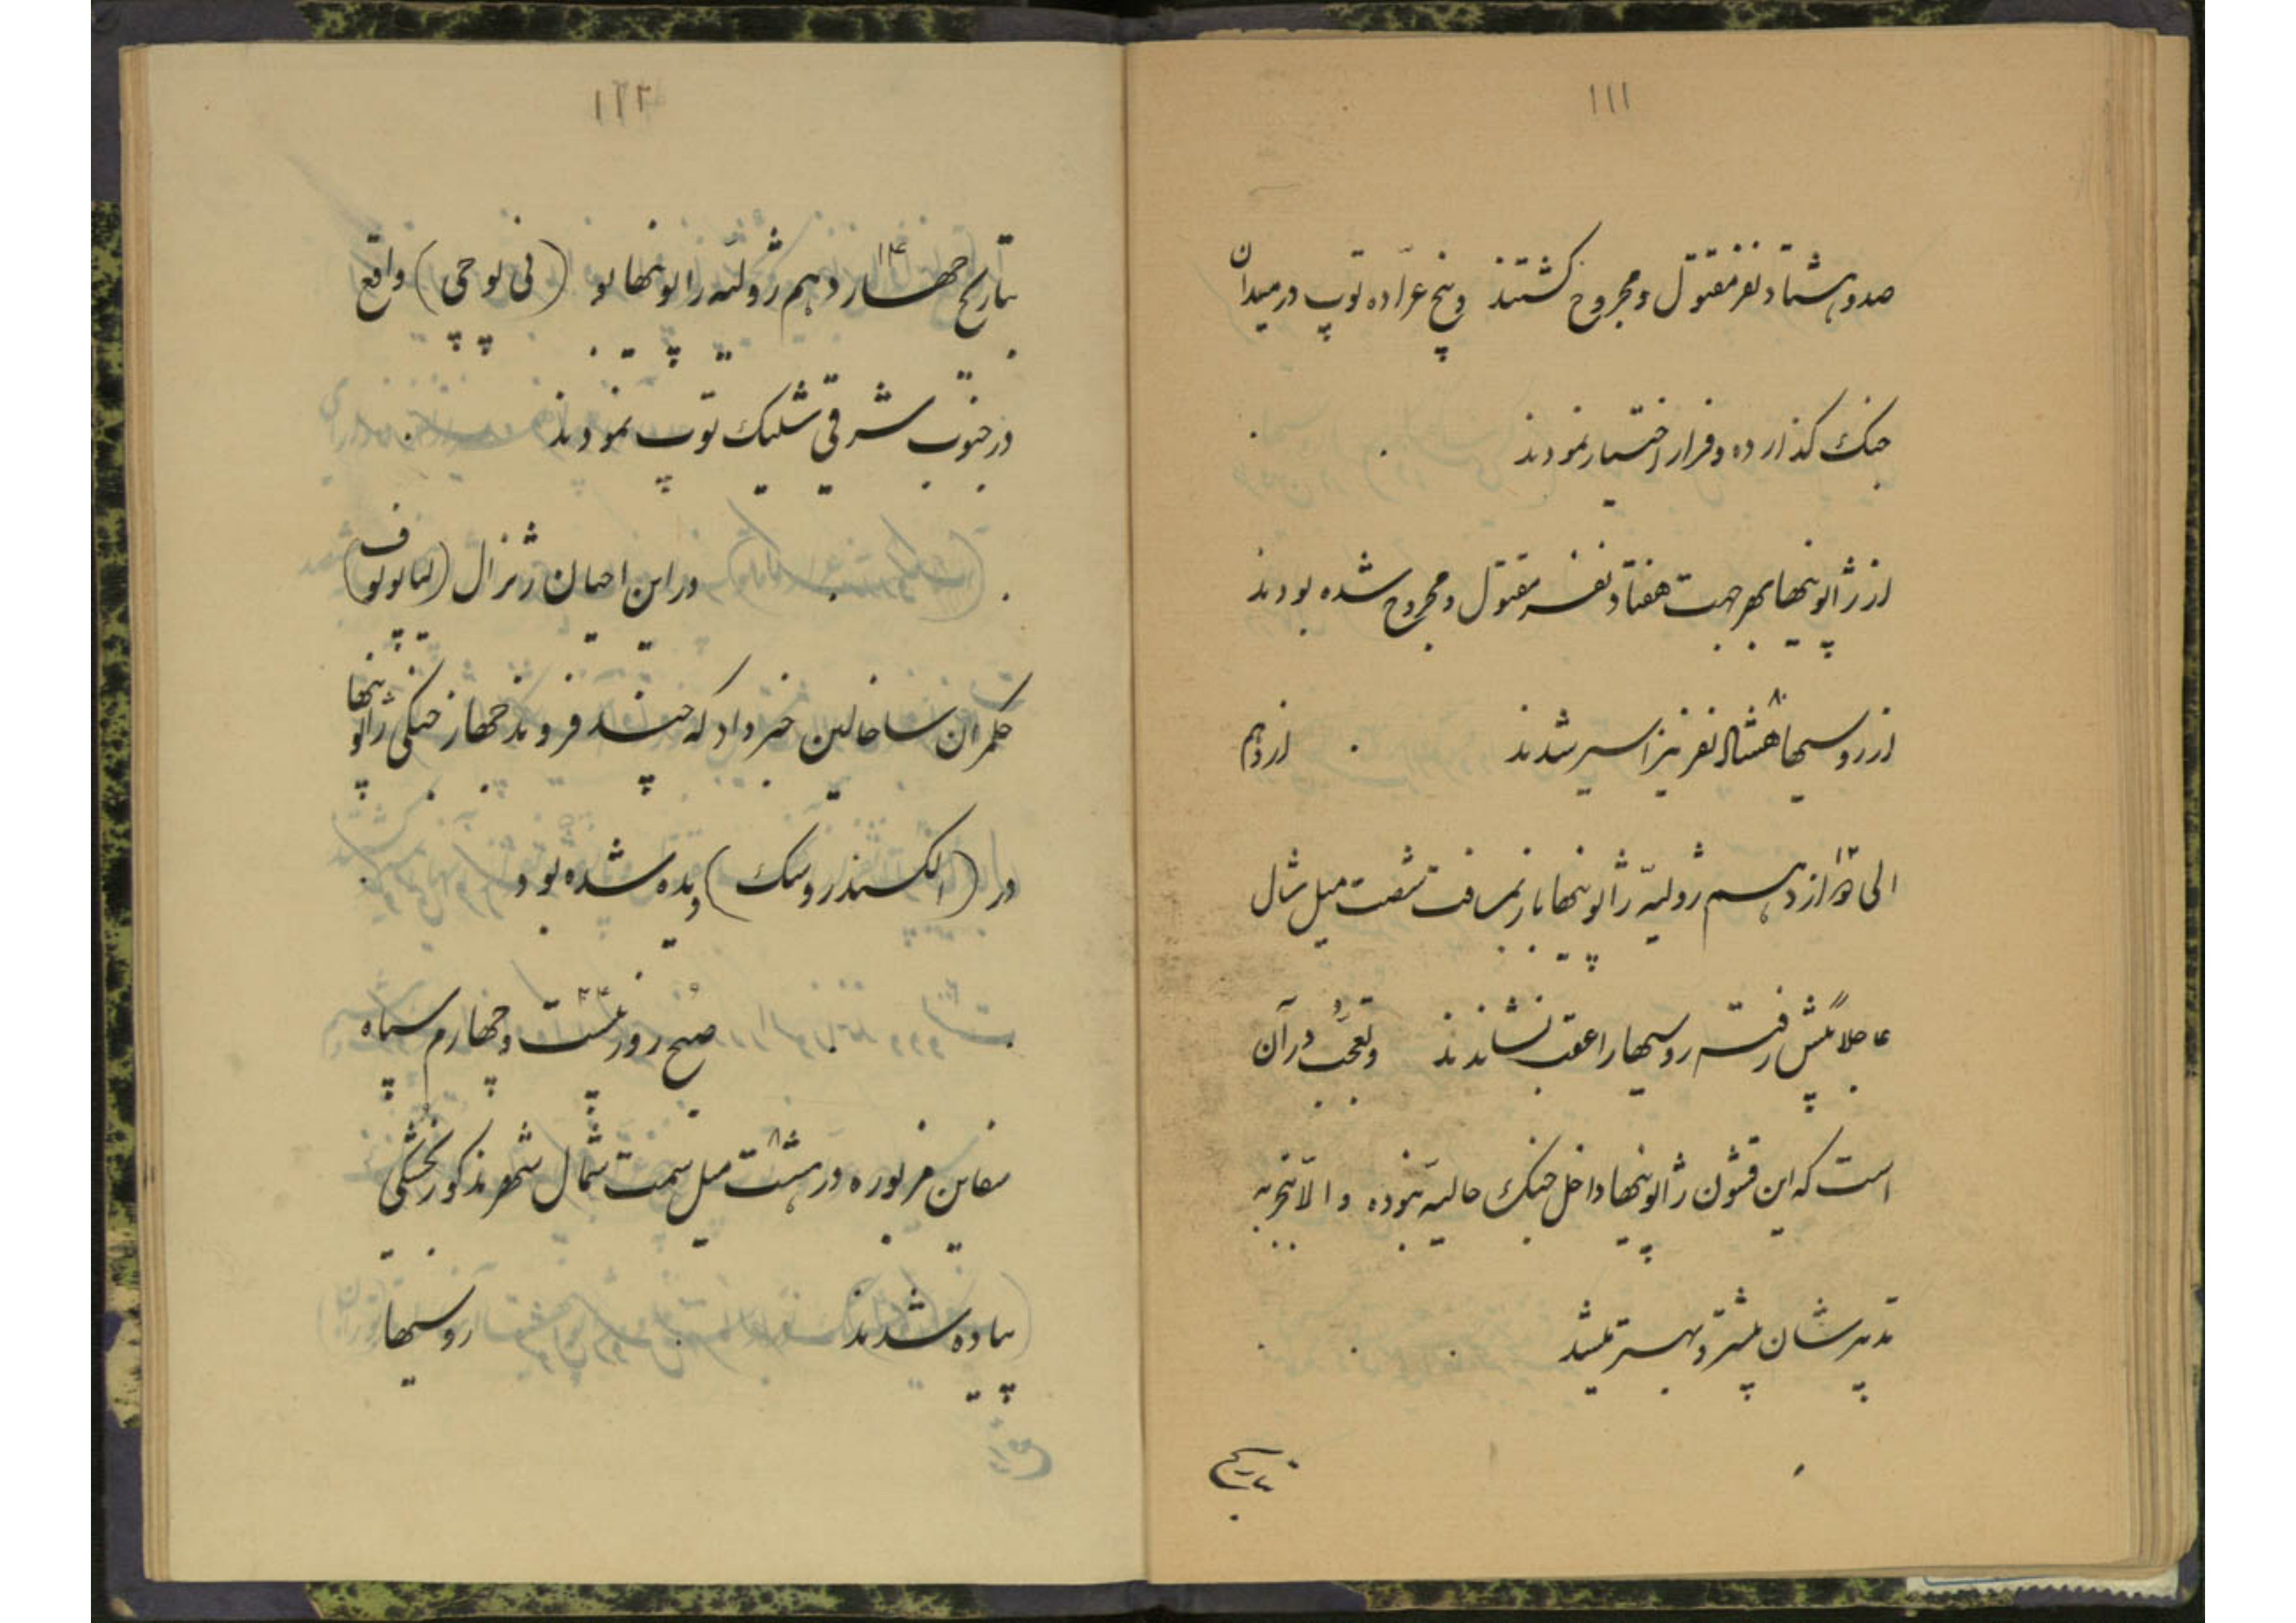 ۱۱۱
صد و هشتاد نفر مقتول و مجروح کشتند و پنج عرّاده توپ در میدان
جنک کذارده و فرار اختیار نمودند
از ژاپونیها بهر جهت هفتاد نفر مقتول و مجروح شده بودند
از روسیها هشتاد ۸۰ نفر نیز اسیر شدند از دهم
الی دوازدهم ۱۲ ژولیه ژاپونیها باز بمسافت شصت میل شمال
عاجلاً پیش رفته روسیها را عقب نشاندند و تعجب در آن
است که این قشون ژاپونیها داخل جنک حالیّه نبوده و الّا تجربه
تدبیرشان بیشتر و بهتر میشد
بتاریخ
۱۱۲
بتاریخ چهاردهم ۱۴ ژولیّه ژاپونیها بو (نی لوچی) واقع
در جنوب شرقی شلیک توپ نمودند
در این احیان ژنرال (لیاپونوف)
حکمران ساخالین خبر داد که چند فروند جهاز جنکی ژاپونیها
در (الکسندروسک) دیده شده بود
صبح روز بیست و چهارم ۲۴ سپاه
سفاین مزبوره در هشت ۸ میل سمت شمال شهر مذکور بخشکی
پیاده شدند روسیها